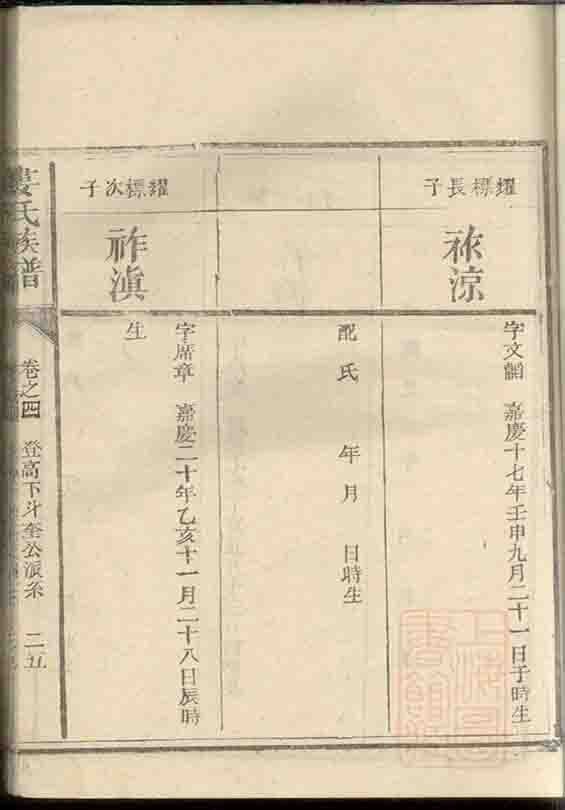 耀標長子
祢涼
字文韜 嘉慶十七年壬申九月二十一日子時生
配氏 年月 日時生
耀標次子
祚滇
字席章 嘉慶二十年乙亥十一月二十八日辰時
生
婁氏族譜
卷之四 登高下斗奎公派系 二五
上海圖書館藏